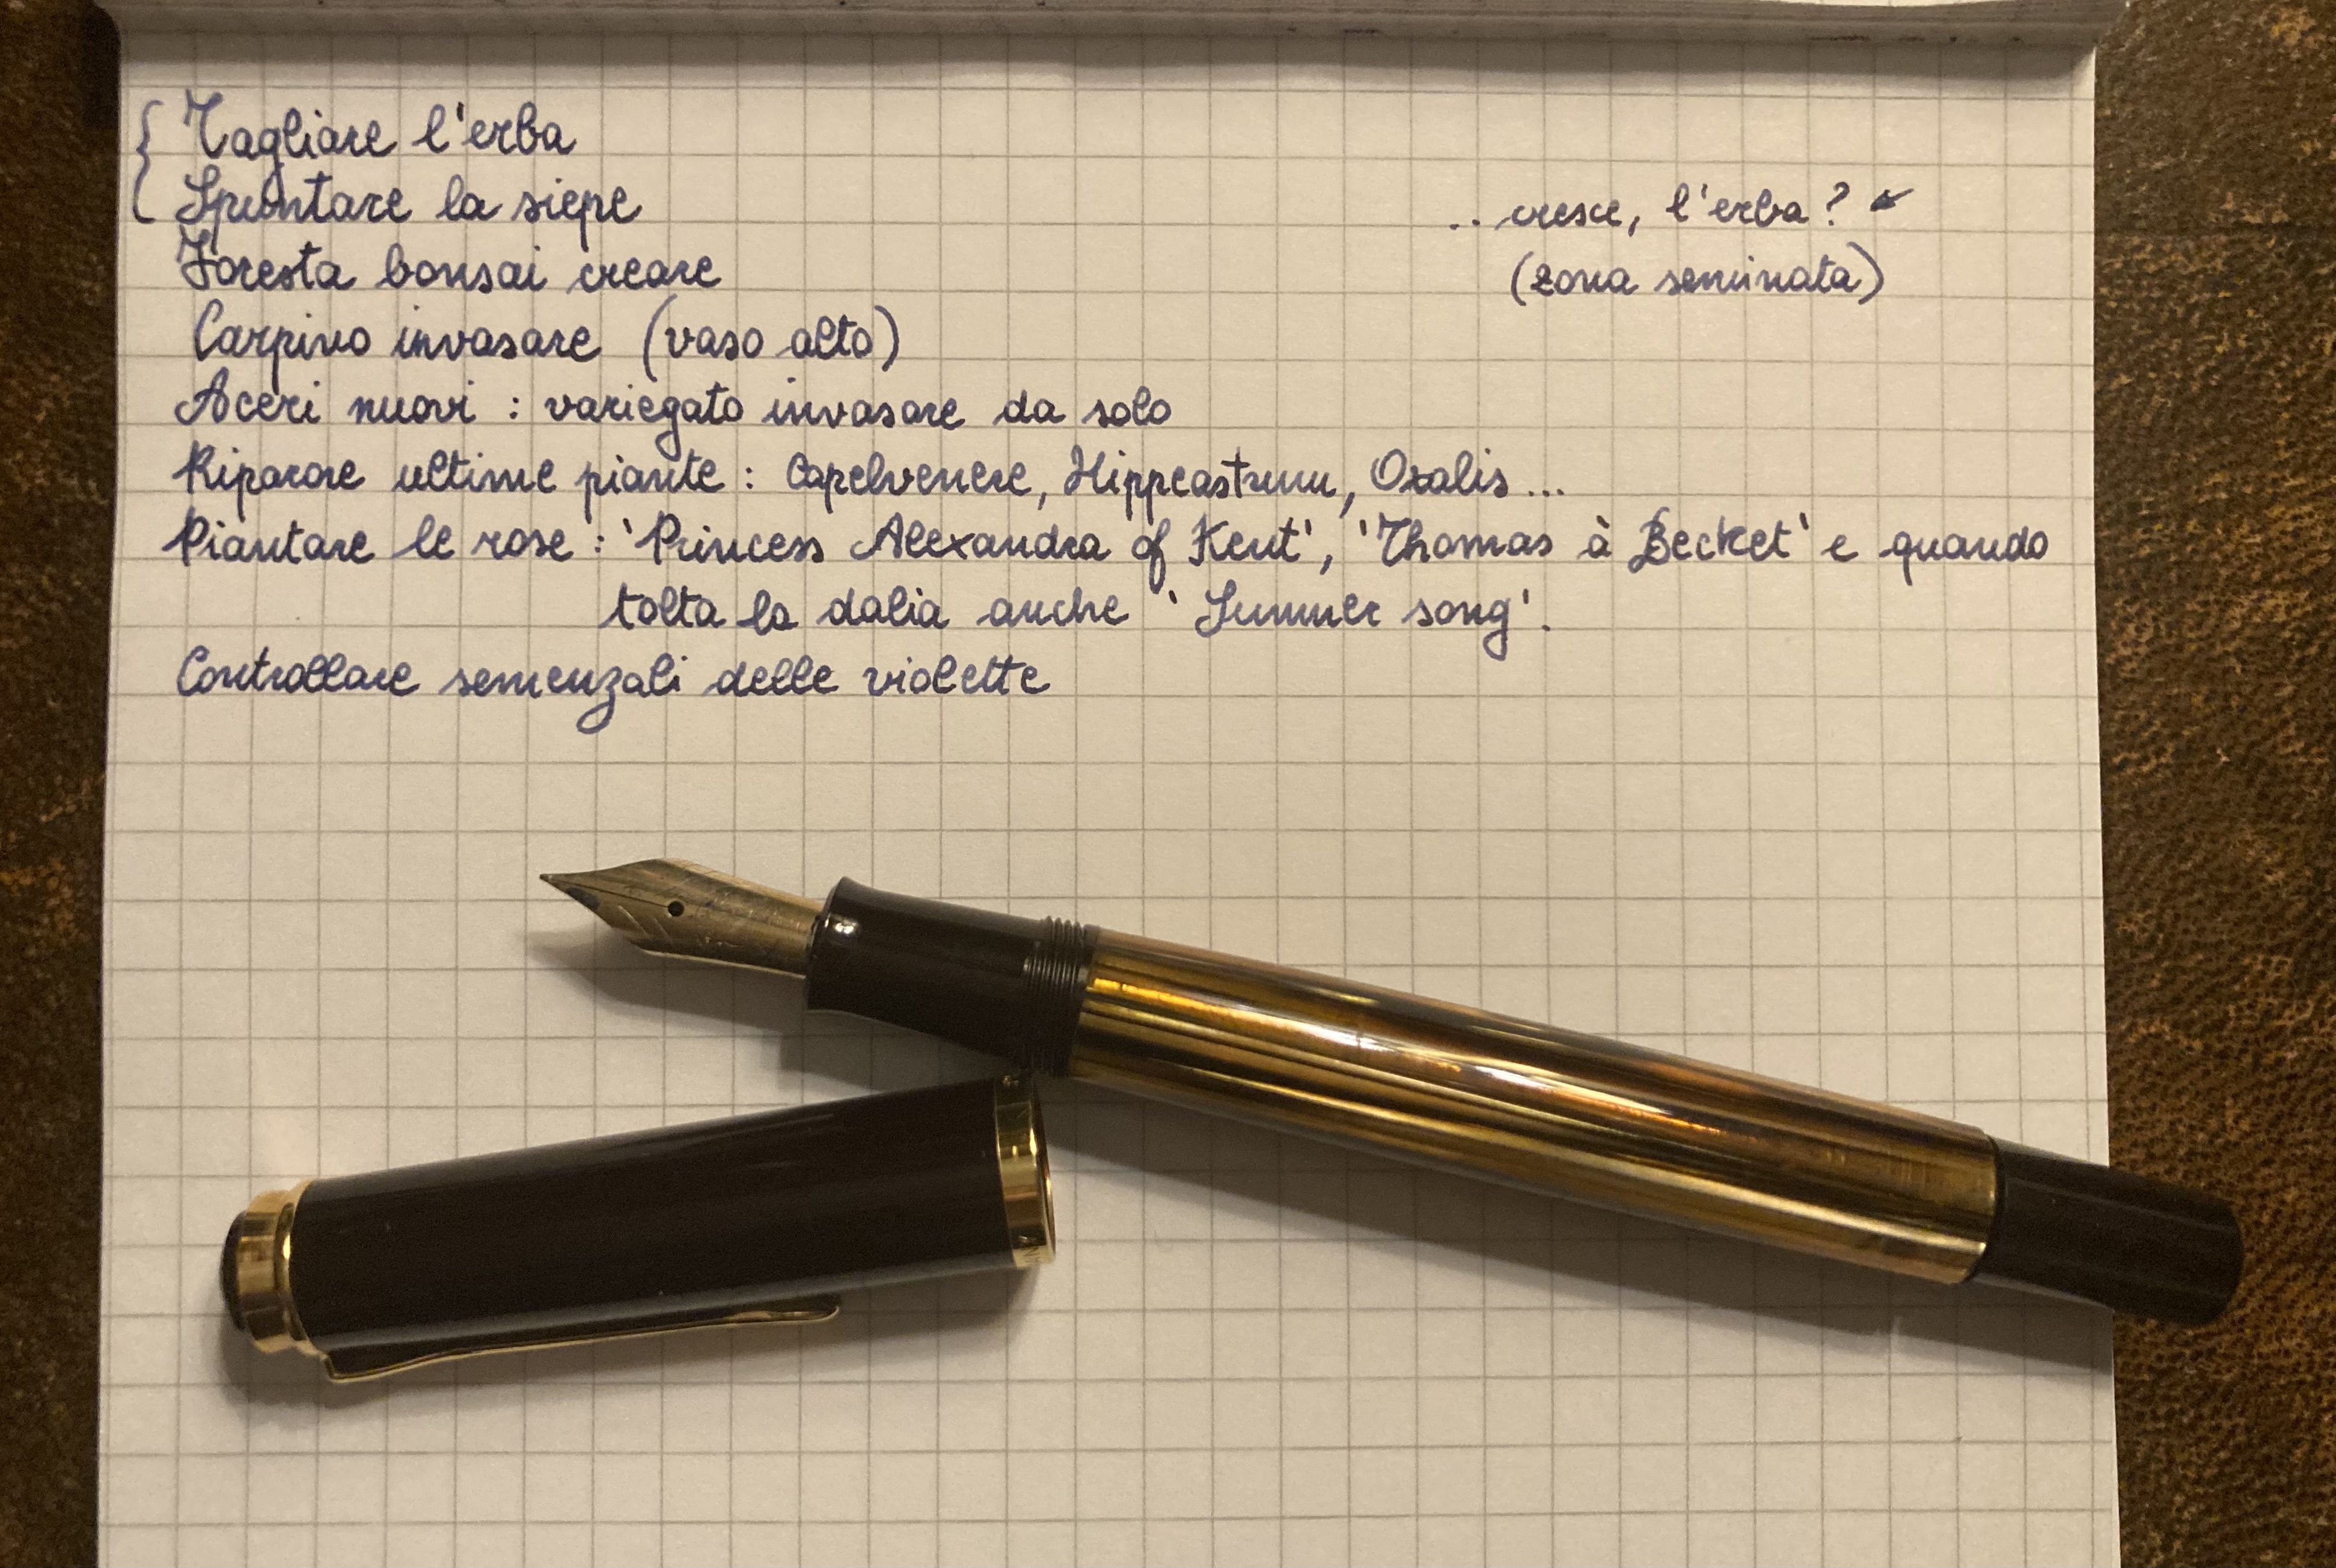 Tagliare l'erba
Spuntare la siepe
.. cresce, l'erba?
Foresta bonsai creare
(zona seminata)
Carpino invasare (vaso alto)
Aceri nuovi : variegato invasare da solo
Riparare ultime piante : Capelvenere, Hippeastrum, Oxalis...
Piantare le rose : 'Princess Alexandra of Kent', 'Thomas à Becket' e quando
tolta la dalia anche 'Summer song'.
Controllare semenzali delle violette